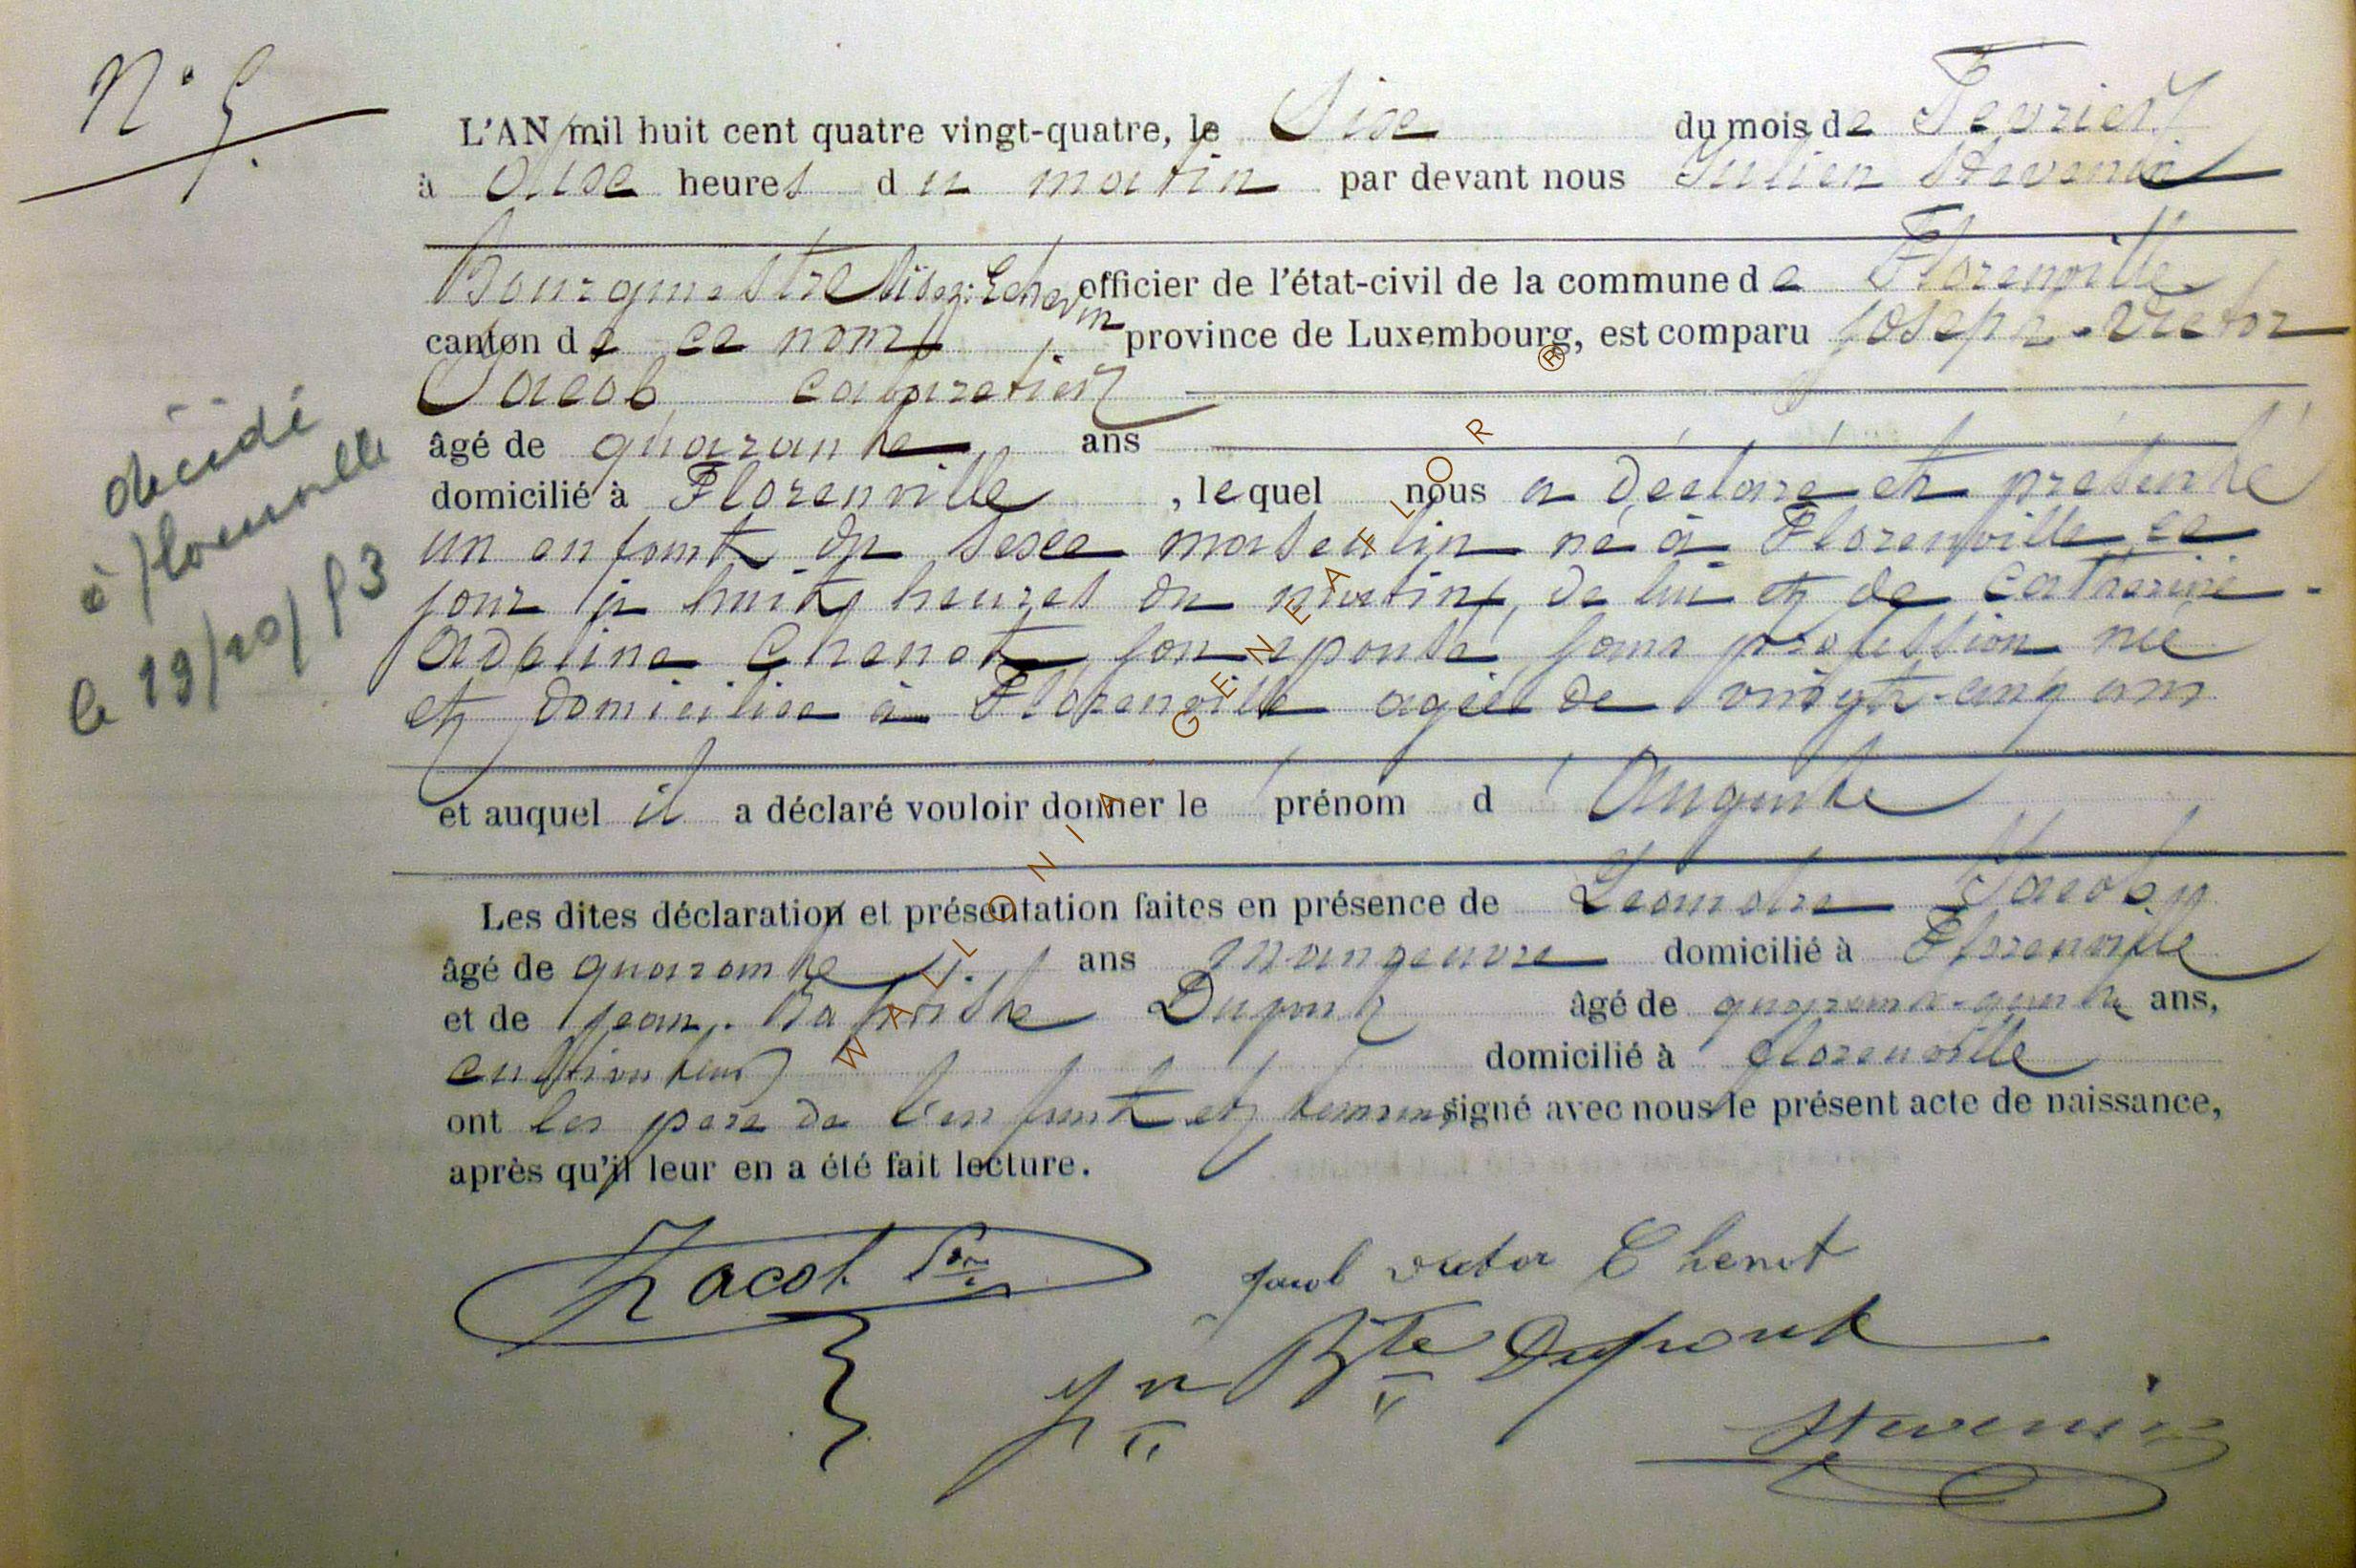 N° 5.
L'AN mil huit cent quatre vingt-quatre, le Six du mois de Fevrier
à onse heures du matin par devant nous Julien Stevenin
Bourgmestre Echevin officier de l'état-civil de la commune de Florenville
canton de ce nom province de Luxembourg, est comparu Joseph-Victor
Jacob, cabaretier
âgé de quarante ans
domicilié à Florenville, lequel nous a déclaré et présenté
un enfant du sexe masculin né à Florenville ce
jour à huit heures du matin, de lui et de Catherine-
Adeline Chenot, son épouse, sans profession née
et domiciliée à Florenville agée de vingt-cinq ans
et auquel il a déclaré vouloir donner le prénom d' Auguste
Les dites déclaration et présentation faites en présence de Jacob
âgé de quarante ans manoeuvre domicilié à Florenville
et de Jean-Baptiste Dupont âgé de ans,
cultivateur domicilié à Florenville
ont les père de l'enfant et temoins signé avec nous le présent acte de naissance,
après qu'il leur en a été fait lecture.
décédé
à Florenville
le 19/10/53
Jacob
Jacob victor Chenot
Jn Bte Dupont
Stevenin
WALLONIA GENEAFLOR ®